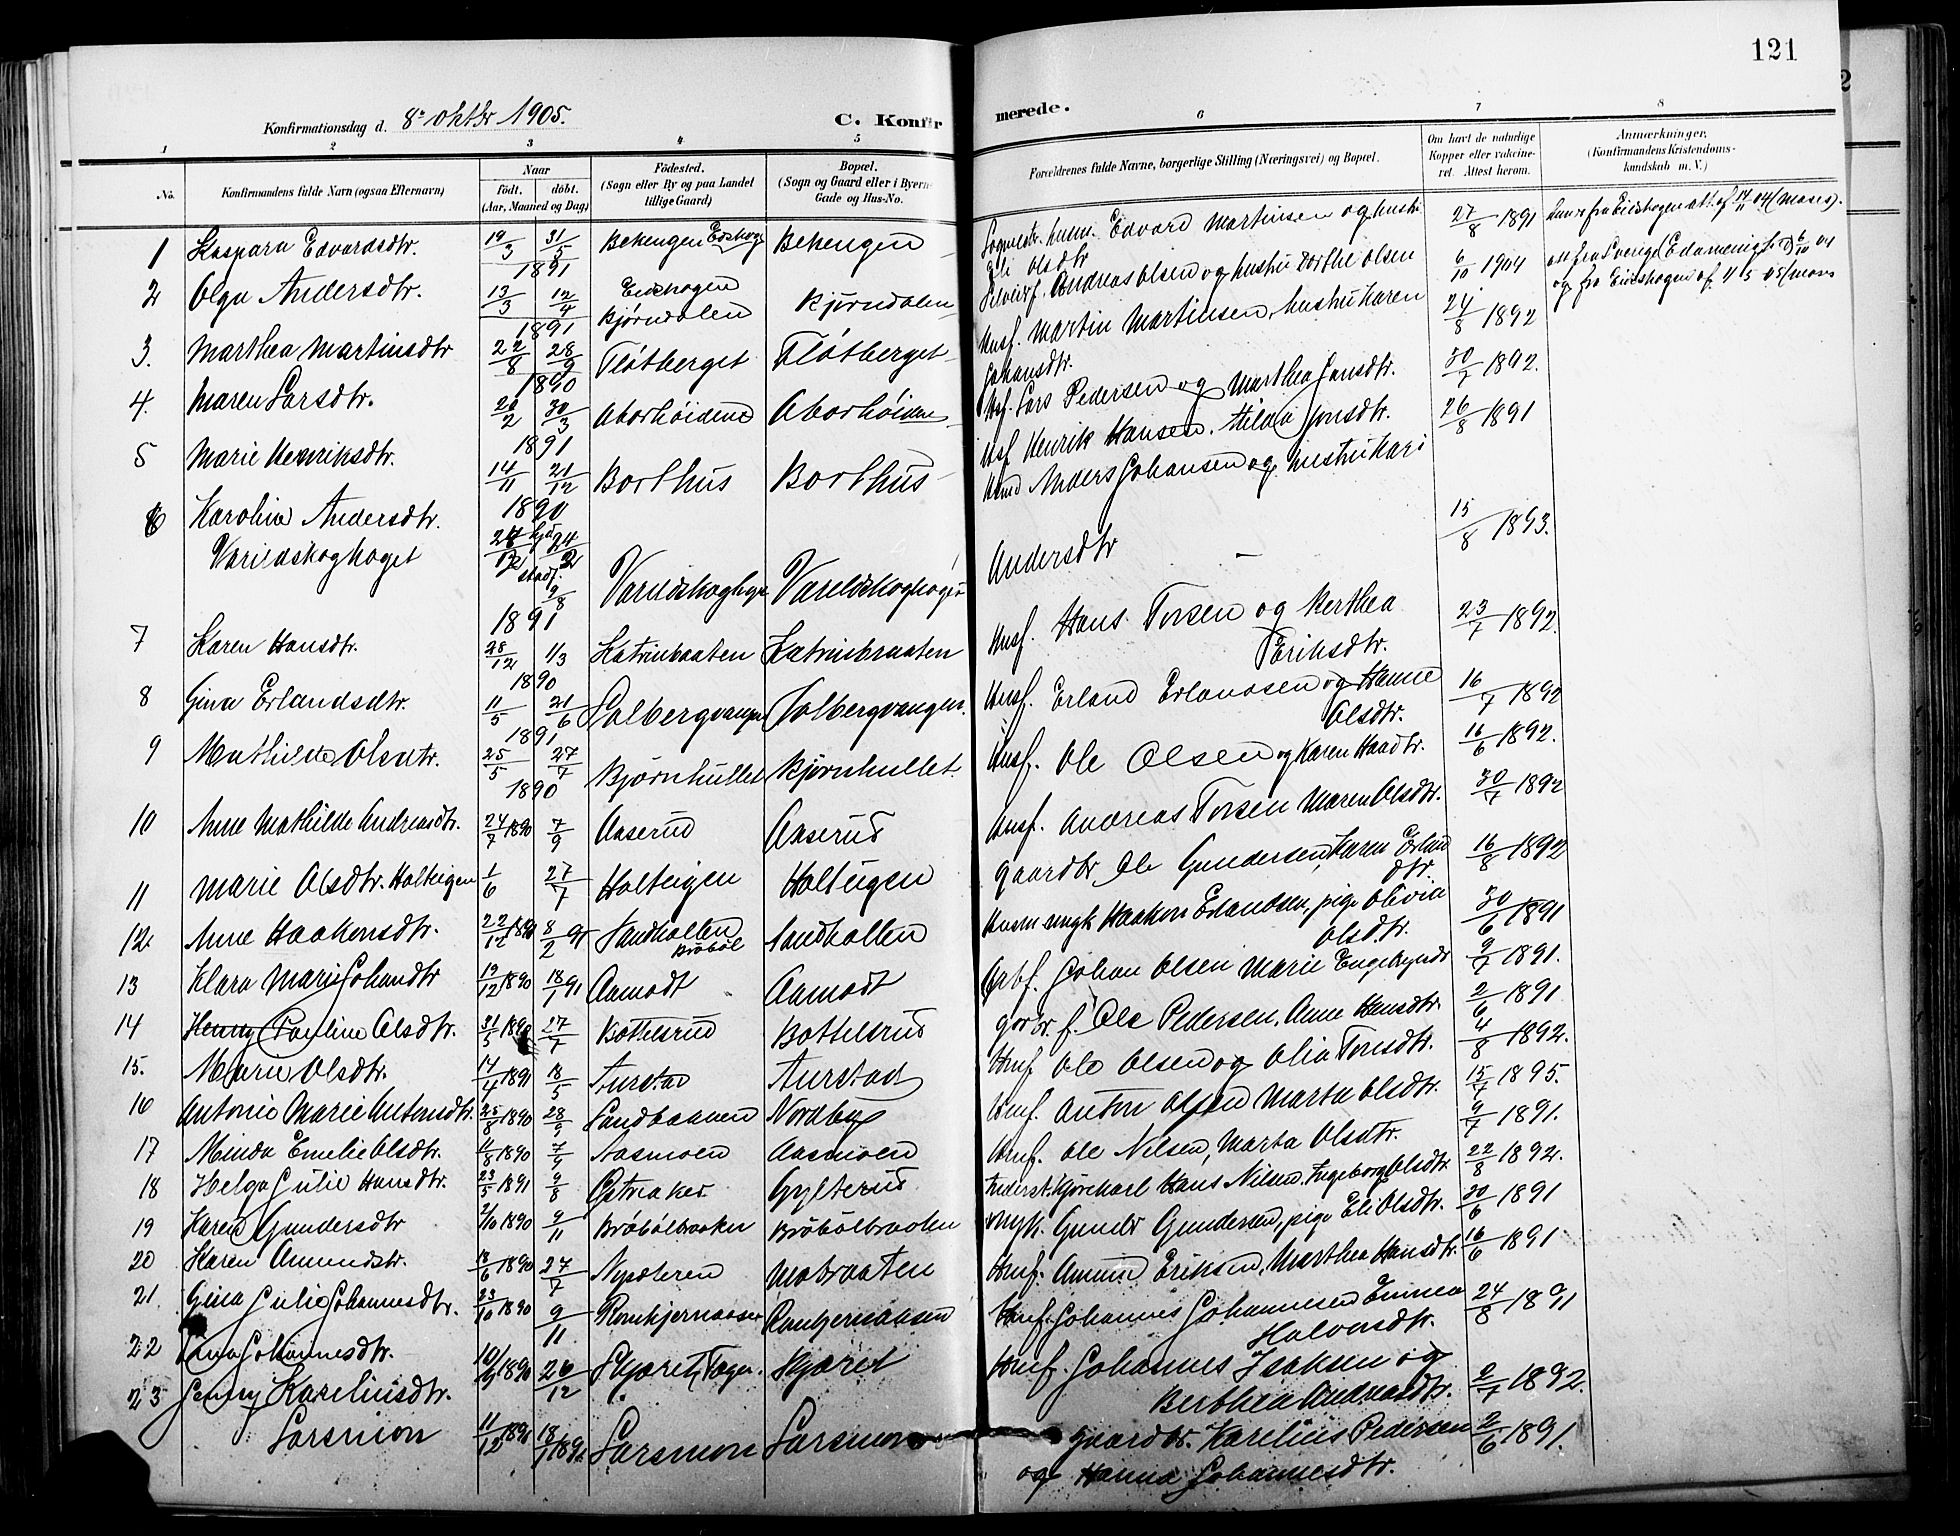 121
Konfirmationsdag d. 8de oktbr 1905.
C. Konfirmerede.
1 2 3 4 5 6 7 8
No.
Konfirmandens fulde Navn (ogsaa Efternavn)
Naar
født. døbt.
(Aar, Maaned og Dag)
Fødested.
(Sogn eller By og paa Landet
tillige Gaard)
Bopæl.
(Sogn og Gaard eller i Byerne
Gade og Hus-No.
Forældrenes fulde Navne, borgerlige Stilling (Næringsvei) og Bopæl.
Om havt de naturlige
Kopper eller vakcine-
ret. Attest herom.
Anmærkninger.
(Konfirmandens Kristendoms-
kundskab m. V.)
1 Kaspara Edvardsdtr. 19/3 31/5 1891 Bekengen Eidskog Bekengen Edvard Martinsen og hustru Eli Olsdtr 27/8 1891
2 Olga Andersdtr. 13/3 12/4 1891 Eidskogen Bjørndalen Bjørndalen Andreas Olsen og hustru Dorthe Olsen 6/10 1904
3. Marthea Martinsdtr 22/8 28/9 1890 Fløtberget Fløtberget Husf. Martin Martinsen, hustru Karen Johansdtr. 24/8 1892
4. Maren Larsdtr. 20/2 30/3 1891 Aborhøidene Aborhøidene Husf. Lars Pedersen og Marthea Jensdtr. 30/7 1892.
5 Marie Henriksdtr. 14/11 21/12 1890 Borthus Borthus Husf Henrik Hansen. Hilda Jonsdtr. 26/8 1891
6 Karolina Andersdtr. Varildskoghøget 24/2 stadf. 9/8 1891 Varildskoghøget Anders Johansen og hustru Kari Andersdtr 15/8 1893.
7 Karen Hansdtr. 28/12 1/3 1890 Katrinbraaten Katrinbraaten Husf. Hans Torsen og Berthea Eriksdtr. 23/7 1892.
8 Gina Erlandsdtr. 11/5 21/6 1891 Solbergvangen Solbergvangen. Husf. Erland Erlandsen og Hanne Olsdtr. 16/7 1892
9 Mathilde Olsdtr. 25/5 27/7 1890 Bjørnhullet Bjørnhullet. Husf. Ole Olsen og Karen 16/6 1892.
10 Anne Mathilde Andreasdtr. 24/7 1890 7/9 Aaserud Aaserud Husf. Andreas Torsen Maren Olsdtr. 30/7 1892
11 Marie Olsdtr. Holteigen 1/6 27/7 Holteigen Holteigen Gaardbr. Ole Gundersen, Karen Erlandsdtr. 16/8 1892
12. Anne Haakonsdtr. 22/12 1890 8/2 91 Sandholten Brøbøl Sandholten ungk Haakon Erlandsen, pige Olivia Olsdtr. 30/6 1891
13 Klara Marie Johansdtr 19/12 1890 18/1 91 Aamodt Aamodt Arbf. Johan Olsen Marie 9/7 1891.
14 Henny Pauline Olsdtr. 31/5 1890 27/7 Bottelsrud Bottelsrud Ole Pedersen. Anne Hansdtr. 2/6 1891
15. Marie Olsdtr. 14/4 1891 18/5 Aurstad Aurstad Husf Ole Olsen og Olia Tonsdtr. 4/8 1892.
16 Antonie Marie Antonsdtr. 25/8 1890 28/9 Nordby Husf. Anton Olsen Marta Olsdtr. 15/7 1895.
17 Minda Emelie Olsdtr. 11/8 1890 7/9 Aasmoen Aasmoen Husf. Ole Nilsen, Marta Olsdtr. 9/7 1891.
18 Helga Julie Hansdtr. 23/5 1891 9/8 Østreaker Gylterud Kjørekarl Hans Nilsen. Ingeborg Olsdtr 22/8 1892.
19 Karen Gundersdtr 2/10 1890 9/11 Brøbølbraaten Brøbølbraaten ungk. Gunder Gundersen, pige Eli Olsdtr. 30/6 1891
20 Karen Amundsdtr. 13/6 1890 27/7 Mobraaten Husf. Amund Eriksen, Marthea Hansdtr. 16/6 1891
21. Gina Julie Johannesdtr. 23/10 1890 9/11 Husf. Johannes Johannesen Emma Halvorsdtr. 24/8 1891
22 Johannesdtr. 10/9 1890 26/12 Skjæret Skjæret Husf. Johannes Isaksen og Berthea Andreasdtr. 2/7 1892.
23 Jenny Kareliusdtr. Larsmon 11/12 1890 18/1 1891 Larsmon Larsmon Gaardbr. Karelius Pedersen og Hanna Johannesdtr. 2/6 1891.